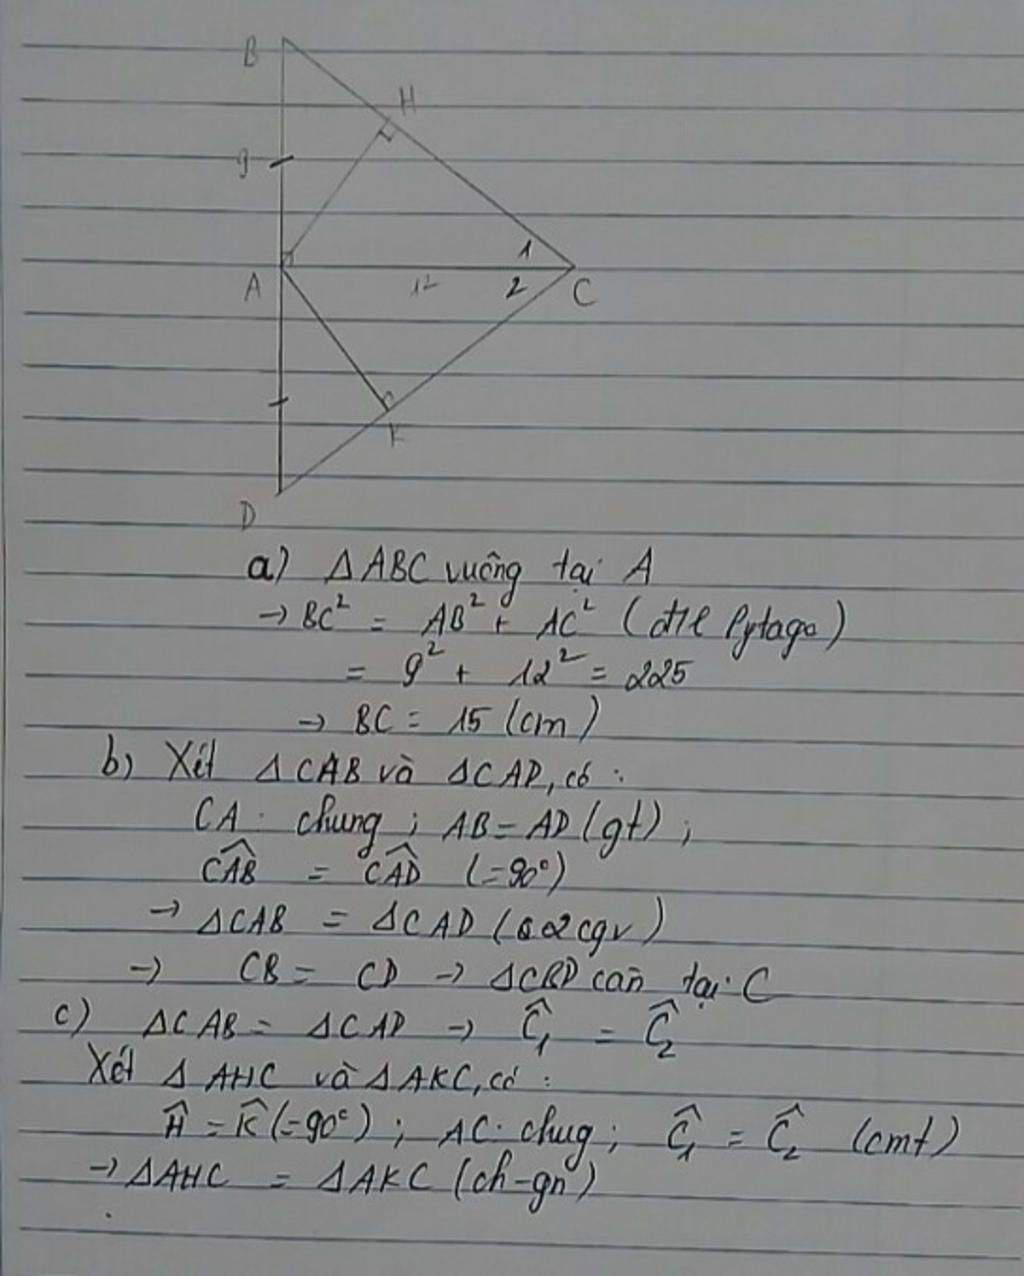 B
H
9
1
A
12
2
C
K
D
a) ΔABC vuông tại A
→ BC² = AB² + AC² (đtl Pytago)
= 9² + 12² = 225
→ BC = 15 (cm)
b) Xét ΔCAB và ΔCAD, có :
CA chung ; AB = AD (gt) ;
\widehat{CAB} = \widehat{CAD} (=90°)
→ ΔCAB = ΔCAD (2cgv)
→ CB = CD → ΔCBD cân tại C
c) ΔCAB = ΔCAD → Ĉ₁ = Ĉ₂
Xét ΔAHC và ΔAKC, có :
Ĥ = K̂ (=90°) ; AC chug ; Ĉ₁ = Ĉ₂ (cmt)
→ ΔAHC = ΔAKC (ch-gn)